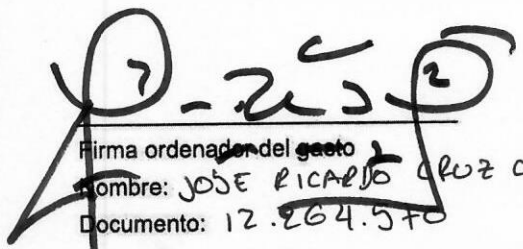 Firma ordenador del gasto
Nombre: JOSE RICARDO CRUZ C
Documento: 12.264.570